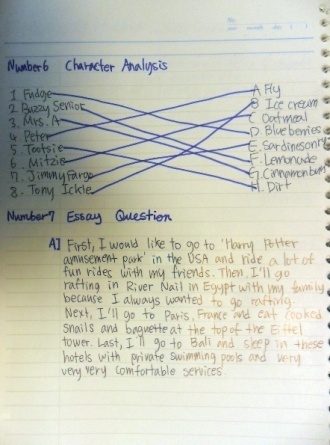 Number6 Character Analysis
1. Fudge A. Fly
2. Buzzy Senior B. Ice cream
3. Mrs. A C. Oatmeal
4. Peter D. Blueberries
5. Tootsie E. Sardines
6. Mitzie F. Lemonade
7. Jimmy Fargo G. Cinnamon bun
8. Tony Ickle H. Dirt
Number7 Essay Question
A] First, I would like to go to 'Harry Potter
amusement park' in the USA and ride a lot of
fun rides with my friends. Then, I'll go
rafting in River Nail in Egypt with my family
because I always wanted to go rafting.
Next, I'll go to Paris, France and eat cooked
snails and baguette at the top of the Eiffel
tower. Last, I'll go to Bali and sleep in these
hotels with private swimming pools and very
very very comfortable services.